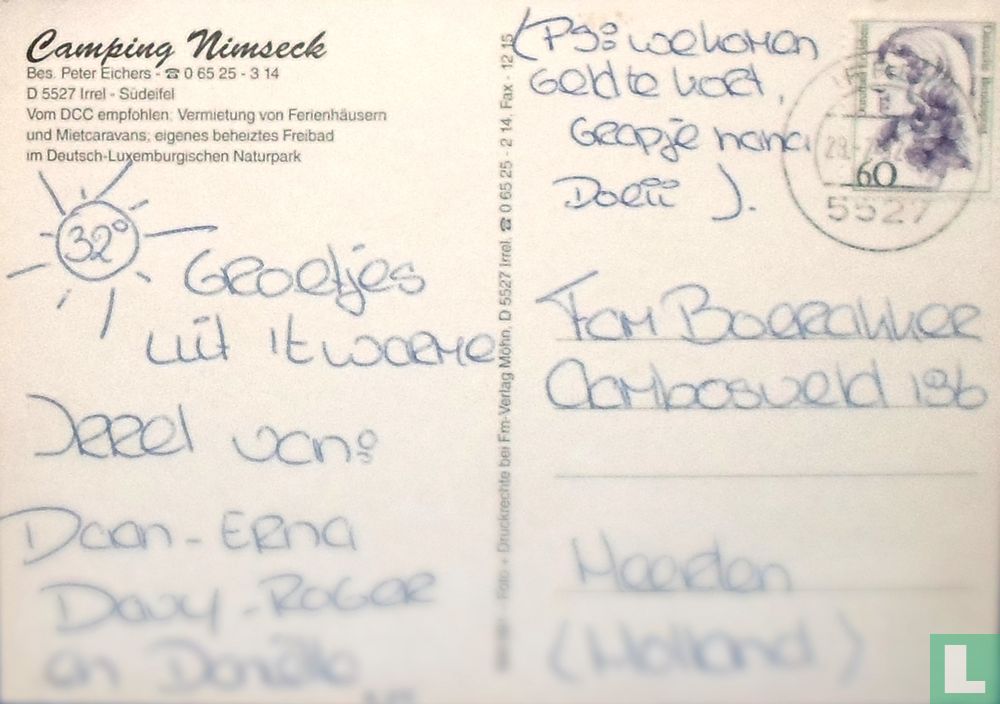 Camping Nimseck
Bes. Peter Eichers - ☎ 0 65 25 - 3 14
D 5527 Irrel - Südeifel
Vom DCC empfohlen: Vermietung von Ferienhäusern
und Mietcaravans; eigenes beheiztes Freibad
im Deutsch-Luxemburgischen Naturpark
32°
Groetjes
uit 't warme
Irrel van:
Daan - Erna
Davy - Roger
en Daniëlle
Foto + Druckrechte bei Fm-Verlag Möhn, D 5527 Irrel, ☎ 0 65 25 - 2 14, Fax - 12 15
(PS: we komen
Geld te kort,
Grapje hana
Doeii ).
60
5527
Fam Boerakker
Aambosveld 196
Heerlen
(Holland)
L